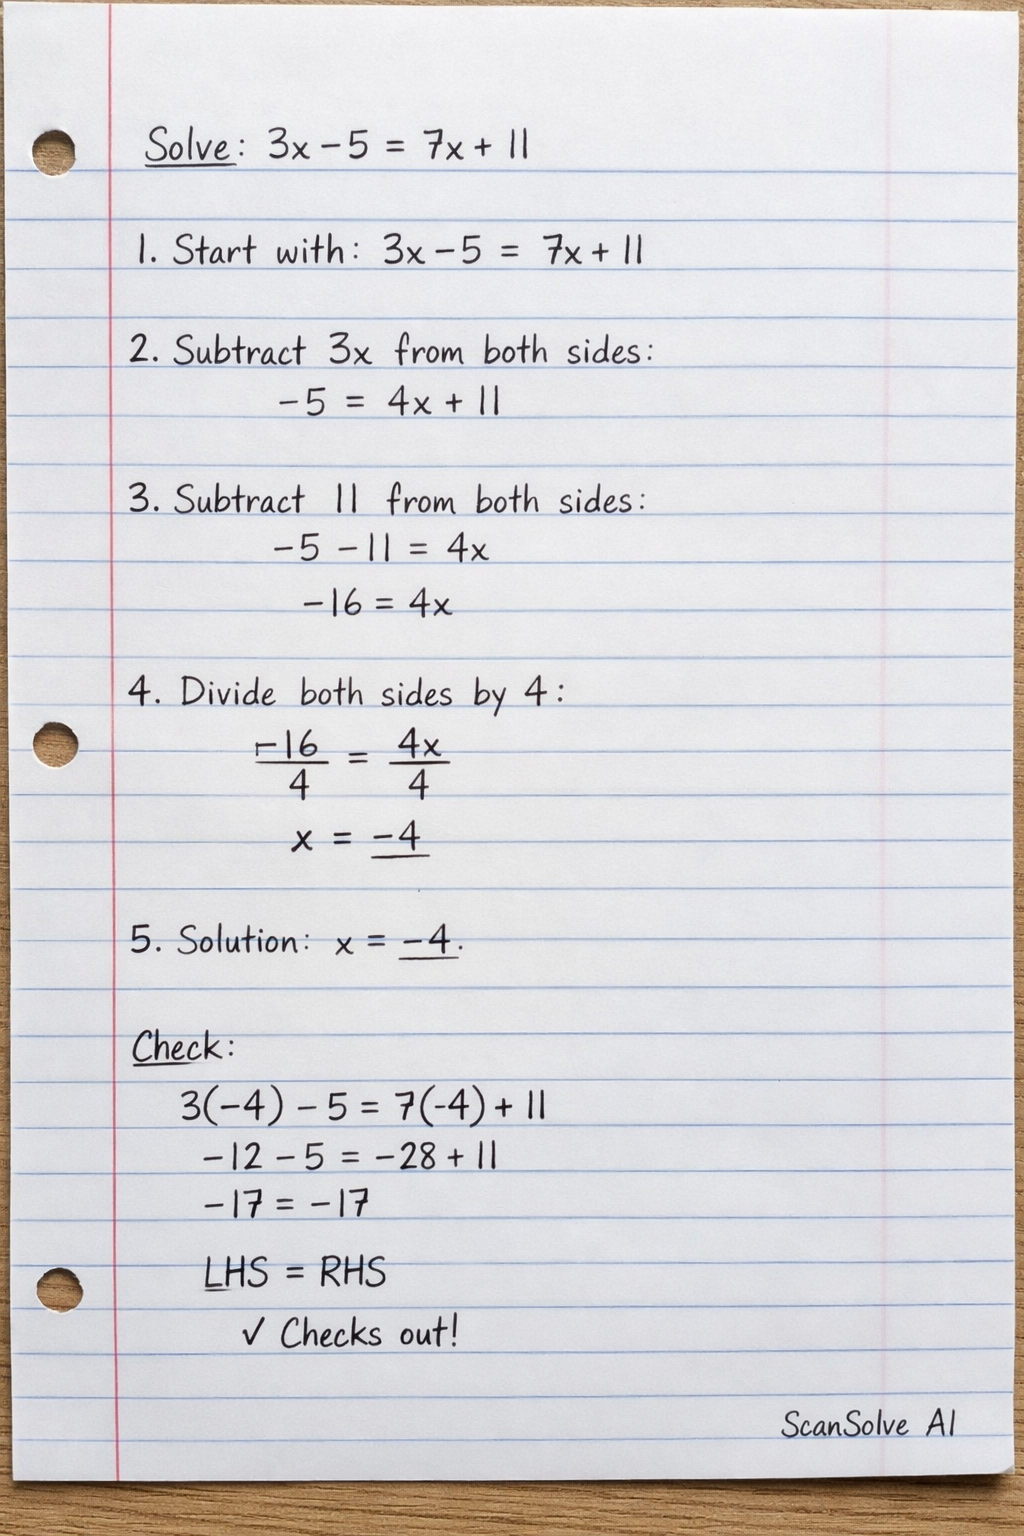 Solve: 3x - 5 = 7x + 11
1. Start with: 3x - 5 = 7x + 11
2. Subtract 3x from both sides:
-5 = 4x + 11
3. Subtract 11 from both sides:
-5 - 11 = 4x
-16 = 4x
4. Divide both sides by 4:
-16/4 = 4x/4
x = -4
5. Solution: x = -4.
Check:
3(-4) - 5 = 7(-4) + 11
-12 - 5 = -28 + 11
-17 = -17
LHS = RHS
✓ Checks out!
ScanSolve AI